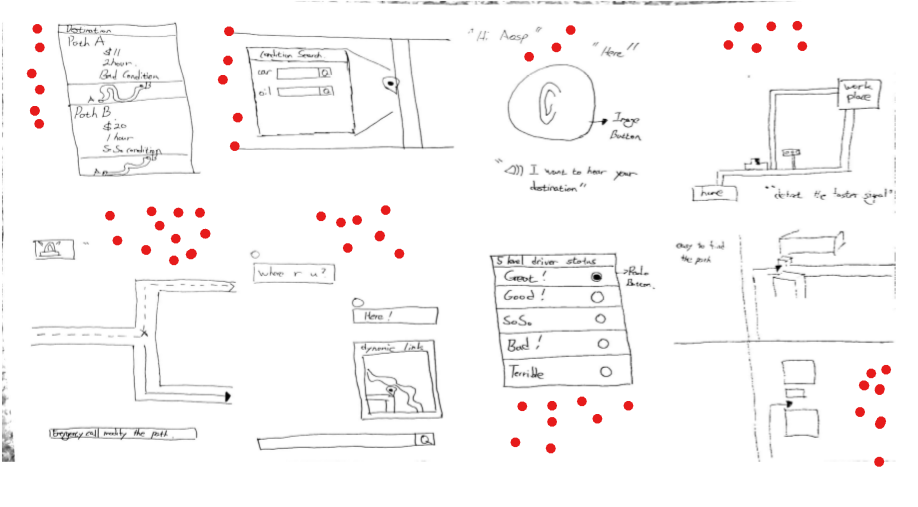 Destination
Path A
$11
2hour.
Bad Condition
A
B
Path B
$20
1 hour
SoSo condition
A
B
Condition Search
car
Q
oil
Q
"Hi Aasp"
"Here"
Image
Button
"I want to hear your
destination"
work
place
home
"detect the faster signal"
Emergency call modify the path.
Where r u?
Here!
dynamic link
Q
5 level driver status
Great!
Good!
SoSo
Bad!
Terrible
Radio
Button.
easy to find
the path